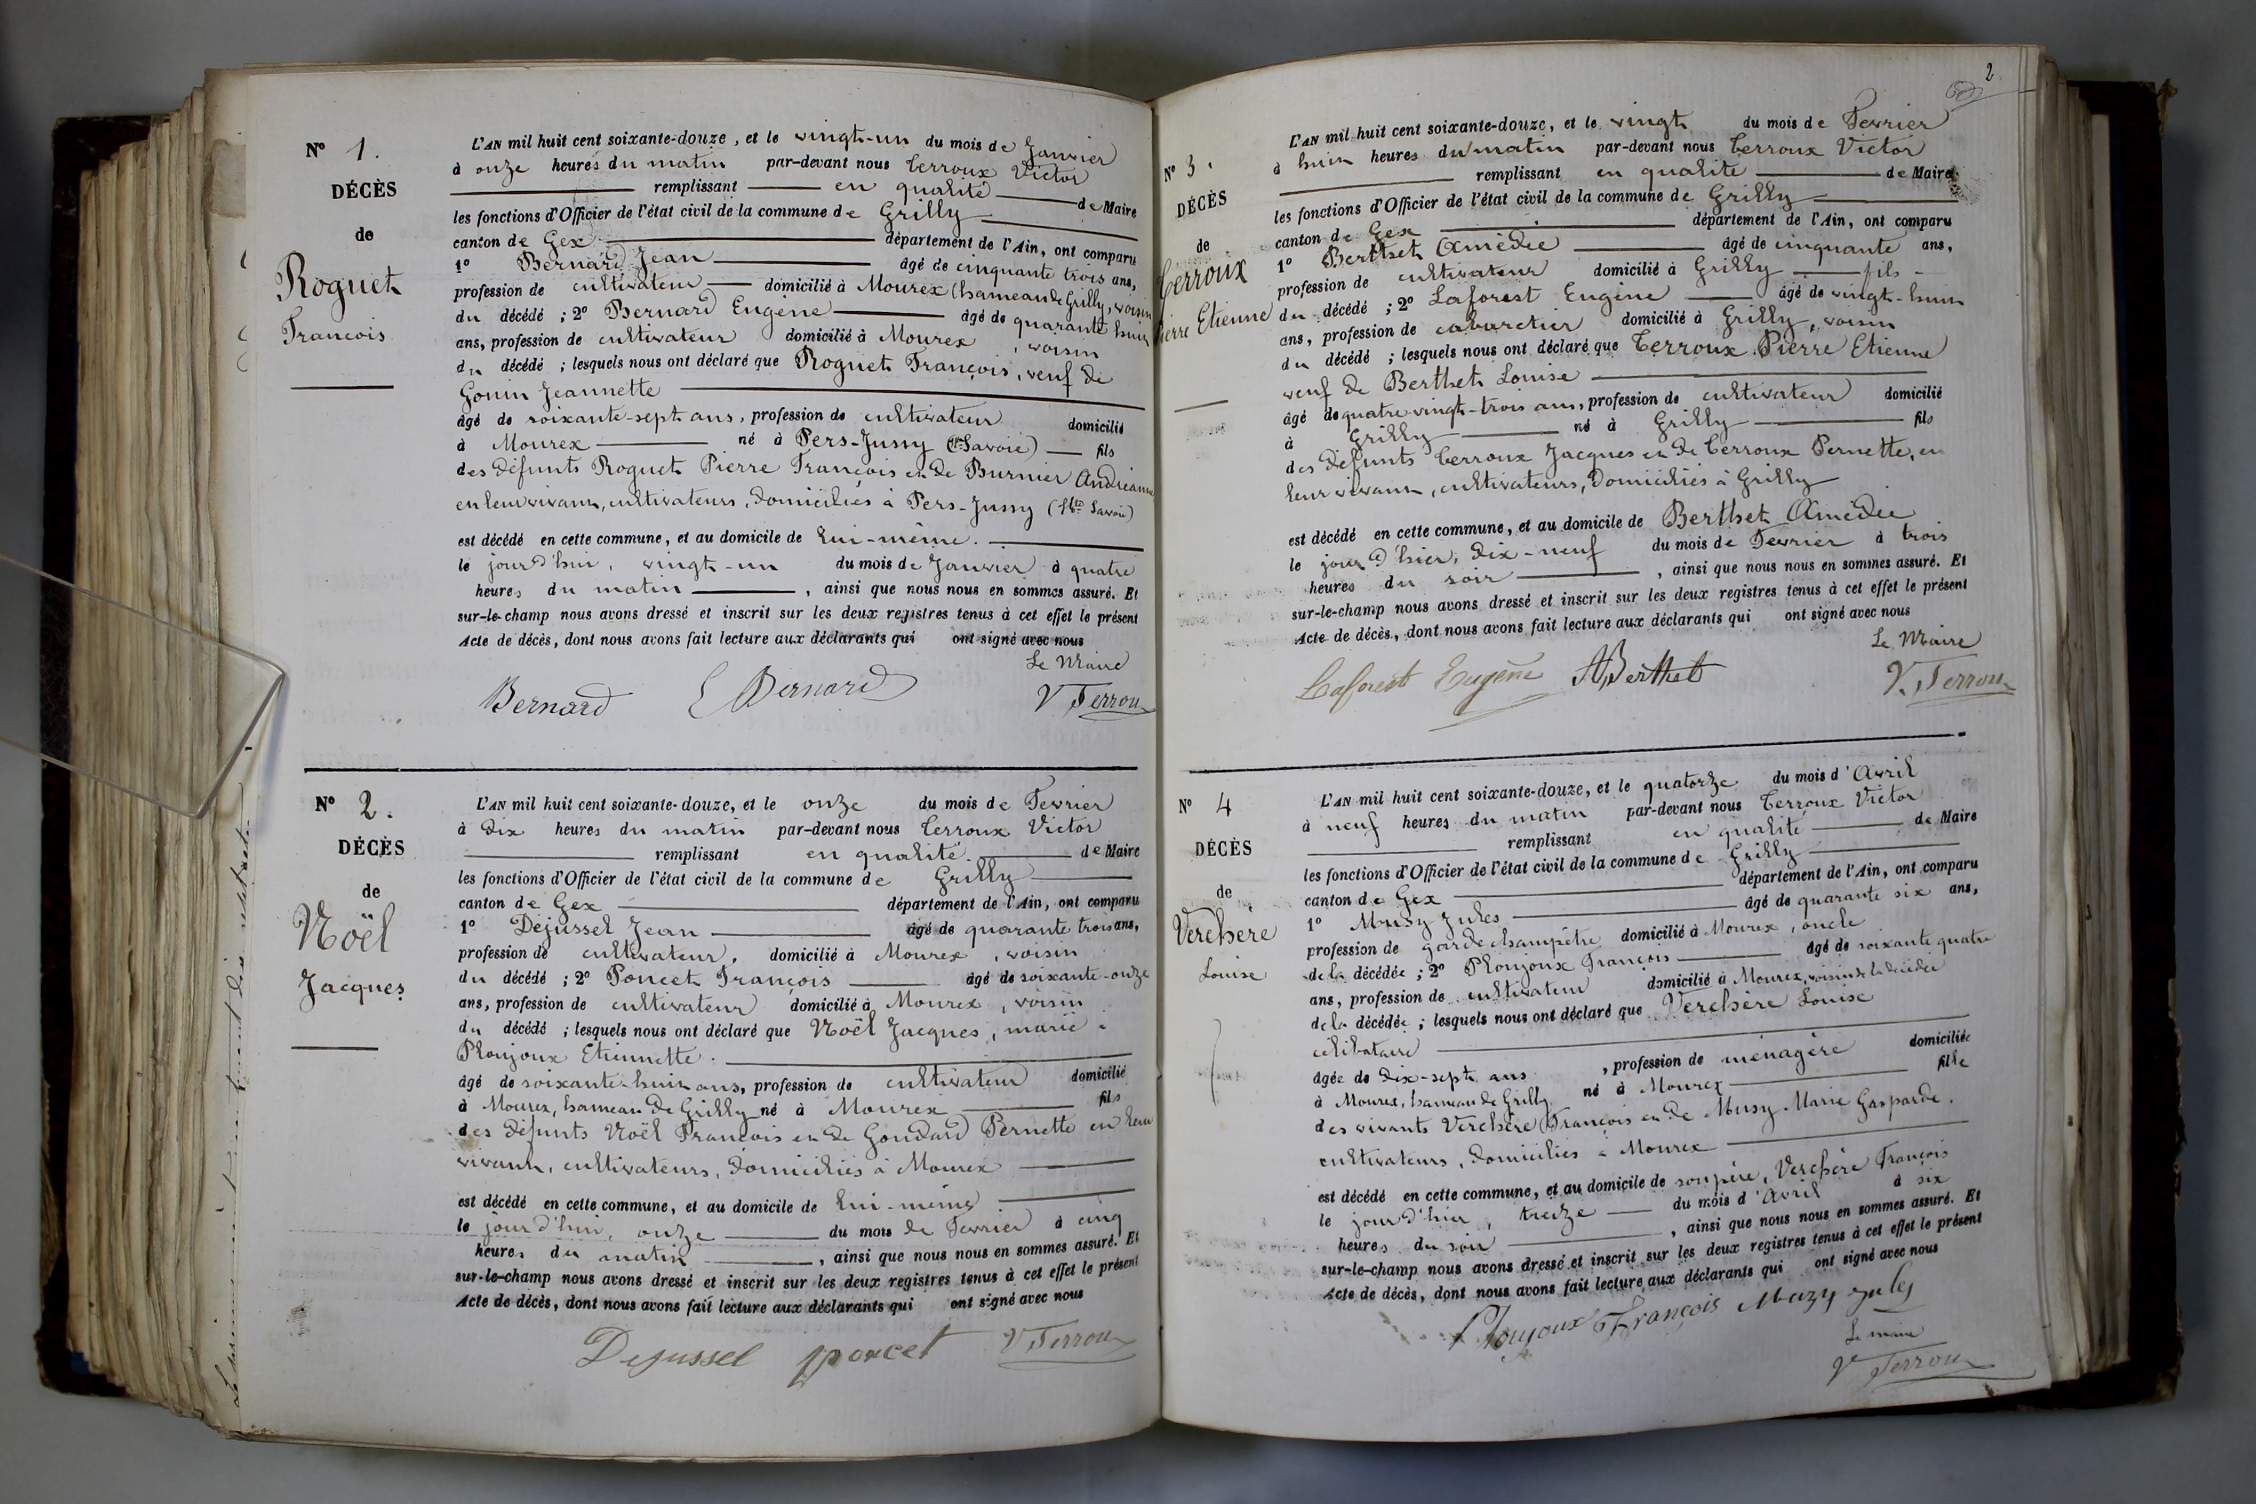 N° 1.
DÉCÈS
de
Roguet
François
L'AN mil huit cent soixante-douze, et le vingt-un du mois de Janvier
à onze heures du matin par-devant nous Terroux Victor
remplissant en qualité de Maire
les fonctions d'Officier de l'état civil de la commune de Grilly
canton de Gex département de l'Ain, ont comparu
1° Bernard Jean âgé de cinquante trois ans,
profession de cultivateur domicilié à Mourex (hameau de Grilly, voisin
du décédé ; 2° Bernard Eugène âgé de quarante huit
ans, profession de cultivateur domicilié à Mourex, voisin
du décédé ; lesquels nous ont déclaré que Roguet François, veuf de
Gonin Jeannette
âgé de soixante-sept ans, profession de cultivateur domicilié
à Mourex né à Pers-Jussy (Hte Savoie) fils
des défunts Roguet Pierre François et de Burnier Andréanne
en leur vivant, cultivateurs, domiciliés à Pers-Jussy (Hte Savoie)
est décédé en cette commune, et au domicile de lui-même.
le jour d'hui, vingt-un du mois de Janvier à quatre
heures du matin, ainsi que nous nous en sommes assuré. Et
sur-le-champ nous avons dressé et inscrit sur les deux registres tenus à cet effet le présent
Acte de décès, dont nous avons fait lecture aux déclarants qui ont signé avec nous
Le Maire
Bernard E Bernard V Terroux
N° 2.
DÉCÈS
de
Noël
Jacques
L'AN mil huit cent soixante-douze, et le onze du mois de Fevrier
à dix heures du matin par-devant nous Terroux Victor
remplissant en qualité de Maire
les fonctions d'Officier de l'état civil de la commune de Grilly
canton de Gex département de l'Ain, ont comparu
1° Dejussel Jean âgé de quarante trois ans,
profession de cultivateur, domicilié à Mourex, voisin
du décédé ; 2° Poncet François âgé de soixante-onze
ans, profession de cultivateur domicilié à Mourex, voisin
du décédé ; lesquels nous ont déclaré que Noël Jacques, marié à
Ploujoux Etiennette.
âgé de soixante-huit ans, profession de cultivateur domicilié
à Mourex, hameau de Grilly né à Mourex fils
des défunts Noël François et de Goudard Pernette en leur
vivant, cultivateurs, domiciliés à Mourex
est décédé en cette commune, et au domicile de lui-même
le jour d'hui, onze du mois de Fevrier à cinq
heures du matin, ainsi que nous nous en sommes assuré. Et
sur-le-champ nous avons dressé et inscrit sur les deux registres tenus à cet effet le présent
Acte de décès, dont nous avons fait lecture aux déclarants qui ont signé avec nous
Dejussel poncet V Terroux
2
N° 3.
DÉCÈS
de
Terroux
Pierre Etienne
L'AN mil huit cent soixante-douze, et le vingt du mois de Fevrier
à huit heures du matin par-devant nous Terroux Victor
remplissant en qualité de Maire
les fonctions d'Officier de l'état civil de la commune de Grilly
canton de Gex département de l'Ain, ont comparu
1° Berthet Amédée âgé de cinquante ans,
profession de cultivateur domicilié à Grilly fils
du décédé ; 2° Laforest Eugène âgé de vingt-huit
ans, profession de cabaretier domicilié à Grilly, voisin
du décédé ; lesquels nous ont déclaré que Terroux Pierre Etienne
veuf de Berthet Louise
âgé de quatre vingt-trois ans, profession de cultivateur domicilié
à Grilly né à Grilly fils
des défunts Terroux Jacques et de Terroux Pernette, en
leur vivant, cultivateurs, domiciliés à Grilly
est décédé en cette commune, et au domicile de Berthet Amédée
le jour d'hier, dix-neuf du mois de Fevrier à trois
heures du soir, ainsi que nous nous en sommes assuré. Et
sur-le-champ nous avons dressé et inscrit sur les deux registres tenus à cet effet le présent
Acte de décès, dont nous avons fait lecture aux déclarants qui ont signé avec nous
Le Maire
Laforest Eugène A Berthet V. Terroux
N° 4
DÉCÈS
de
Verchère
Louise
L'AN mil huit cent soixante-douze, et le quatorze du mois d'Avril
à neuf heures du matin par-devant nous Terroux Victor
remplissant en qualité de Maire
les fonctions d'Officier de l'état civil de la commune de Grilly
canton de Gex département de l'Ain, ont comparu
1° Musy Jules âgé de quarante six ans,
profession de garde champêtre domicilié à Mourex, oncle
de la décédée ; 2° Ploujoux François âgé de soixante quatre
ans, profession de cultivateur domicilié à Mourex, voisin de la décédée
de la décédée ; lesquels nous ont déclaré que Verchère Louise
célibataire
âgée de dix-sept ans, profession de ménagère domiciliée
à Mourex, hameau de Grilly né à Mourex fille
des vivants Verchère François et de Musy Marie Gasparde.
cultivateurs, domiciliés à Mourex
est décédé en cette commune, et au domicile de son père, Verchère François
le jour d'hier, treize du mois d'Avril à six
heures du soir, ainsi que nous nous en sommes assuré. Et
sur-le-champ nous avons dressé et inscrit sur les deux registres tenus à cet effet le présent
Acte de décès, dont nous avons fait lecture aux déclarants qui ont signé avec nous
Ploujoux François Muzy Jules
Le maire
V Terroux